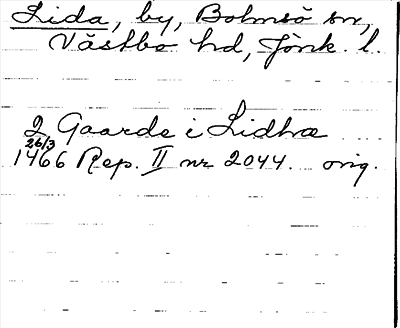 Lida, by, Bolmsö sn,
Västbo hd, Jönk. l.
2 Gaarde i Lidhæ
26/3
1466 Rep. II nr 2044. orig.